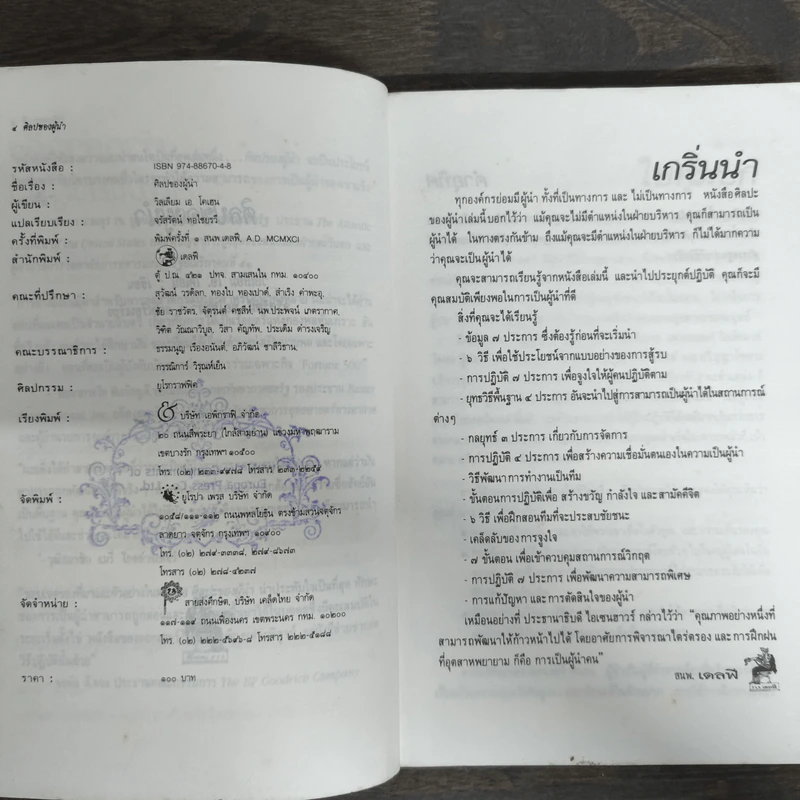 ๔ ศิลปของผู้นำ
รหัสหนังสือ : ISBN 974-88670-4-8
ชื่อเรื่อง : ศิลปของผู้นำ
ผู้เขียน : วิลเลียม เอ. โคเฮน
แปลเรียบเรียง : จรัสรัตน์ ทอไชยรวี
ครั้งที่พิมพ์ : พิมพ์ครั้งที่ ๑ สนพ.เดลฟี, A.D. MCMXCI
สำนักพิมพ์ : เดลฟี
ตู้ ป.ณ. ๔๒๑ ปทจ. สามเสนใน กทม. ๑๐๔๐๐
คณะที่ปรึกษา : สุวัฒน์ วรดิลก, ทองใบ ทองเปาด์, สำเริง คำพะอุ,
ชัย ราชวัตร, จัตุรนต์ คชสีห์, นพ.ประพจน์ เภตรากาศ,
วิฑิต วัณณาวิบูล, วิสา คัญทัพ, ประเดิม ดำรงเจริญ
คณะบรรณาธิการ : ธรรมนูญ เรืองอนันต์, อภิวัฒน์ ชาลีวิชาน,
กรรณิการ์ วิรุณห์เย็น
ศิลปกรรม : ยูโรกราฟฟิค
เรียงพิมพ์ : บริษัท เอพิกราฟ จำกัด
๒๐ ถนนสี่พระยา (ใกล้สามย่าน) แขวงมหาพฤฒาราม
เขตบางรัก กรุงเทพฯ ๑๐๕๐๐
โทร. (๐๒) ๒๓๓-๙๙๗๘ โทรสาร ๒๓๓-๒๒๕๙
จัดพิมพ์ : ยูโรปา เพรส บริษัท จำกัด
๑๐๕๘/๑๑๑-๑๑๒ ถนนพหลโยธิน ตรงข้ามสวนจตุจักร
ลาดยาว จตุจักร กรุงเทพฯ ๑๐๙๐๐
โทร. (๐๒) ๒๗๙-๓๓๓๘, ๒๗๙-๘๖๗๓
โทรสาร (๐๒) ๒๗๘-๔๒๓๗
จัดจำหน่าย : สายส่งศึกษิต, บริษัท เคล็ดไทย จำกัด
๑๑๗-๑๑๙ ถนนเฟื่องนคร เขตพระนคร กทม. ๑๐๒๐๐
โทร. (๐๒) ๒๒๒-๕๖๙๖-๘ โทรสาร ๒๒๒-๕๑๘๘
ราคา : ๑๐๐ บาท
เกริ่นนำ
ทุกองค์กรย่อมมีผู้นำ ทั้งที่เป็นทางการ และ ไม่เป็นทางการ หนังสือศิลปะ
ของผู้นำเล่มนี้บอกไว้ว่า แม้คุณจะไม่มีตำแหน่งในฝ่ายบริหาร คุณก็สามารถเป็น
ผู้นำได้ ในทางตรงกันข้าม ถึงแม้คุณจะมีตำแหน่งในฝ่ายบริหาร ก็ไม่ได้มากความ
ว่าคุณจะเป็นผู้นำได้
คุณจะสามารถเรียนรู้จากหนังสือเล่มนี้ และนำไปประยุกต์ปฏิบัติ คุณก็จะมี
คุณสมบัติเพียงพอในการเป็นผู้นำที่ดี
สิ่งที่คุณจะได้เรียนรู้
- ข้อมูล ๗ ประการ ซึ่งต้องรู้ก่อนที่จะเริ่มนำ
- ๖ วิธี เพื่อใช้ประโยชน์จากแบบอย่างของการสู้รบ
- การปฏิบัติ ๗ ประการ เพื่อจูงใจให้ผู้คนปฏิบัติตาม
- ยุทธวิธีพื้นฐาน ๔ ประการ อันจะนำไปสู่การสามารถเป็นผู้นำได้ในสถานการณ์
ต่างๆ
- กลยุทธ์ ๓ ประการ เกี่ยวกับการจัดการ
- การปฏิบัติ ๔ ประการ เพื่อสร้างความเชื่อมั่นตนเองในความเป็นผู้นำ
- วิธีพัฒนาการ ทำงานเป็นทีม
- ขั้นตอนการปฏิบัติเพื่อ สร้างขวัญ กำลังใจ และสามัคคีจิต
- ๖ วิธี เพื่อฝึกสอนทีมที่จะประสบชัยชนะ
- เคล็ดลับของการจูงใจ
- ๗ ขั้นตอน เพื่อเข้าควบคุมสถานการณ์วิกฤต
- การปฏิบัติ ๗ ประการ เพื่อพัฒนาความสามารถพิเศษ
- การแก้ปัญหา และการตัดสินใจของผู้นำ
เหมือนอย่างที่ ประธานาธิบดี ไอเซนฮาวร์ กล่าวไว้ว่า “คุณภาพอย่างหนึ่งที่
สามารถพัฒนาให้ก้าวหน้าไปได้ โดยอาศัยการพิจารณาไตร่ตรอง และการฝึกฝน
ที่อุตสาหพยายาม ก็คือ การเป็นผู้นำคน”
สนพ. เดลฟี